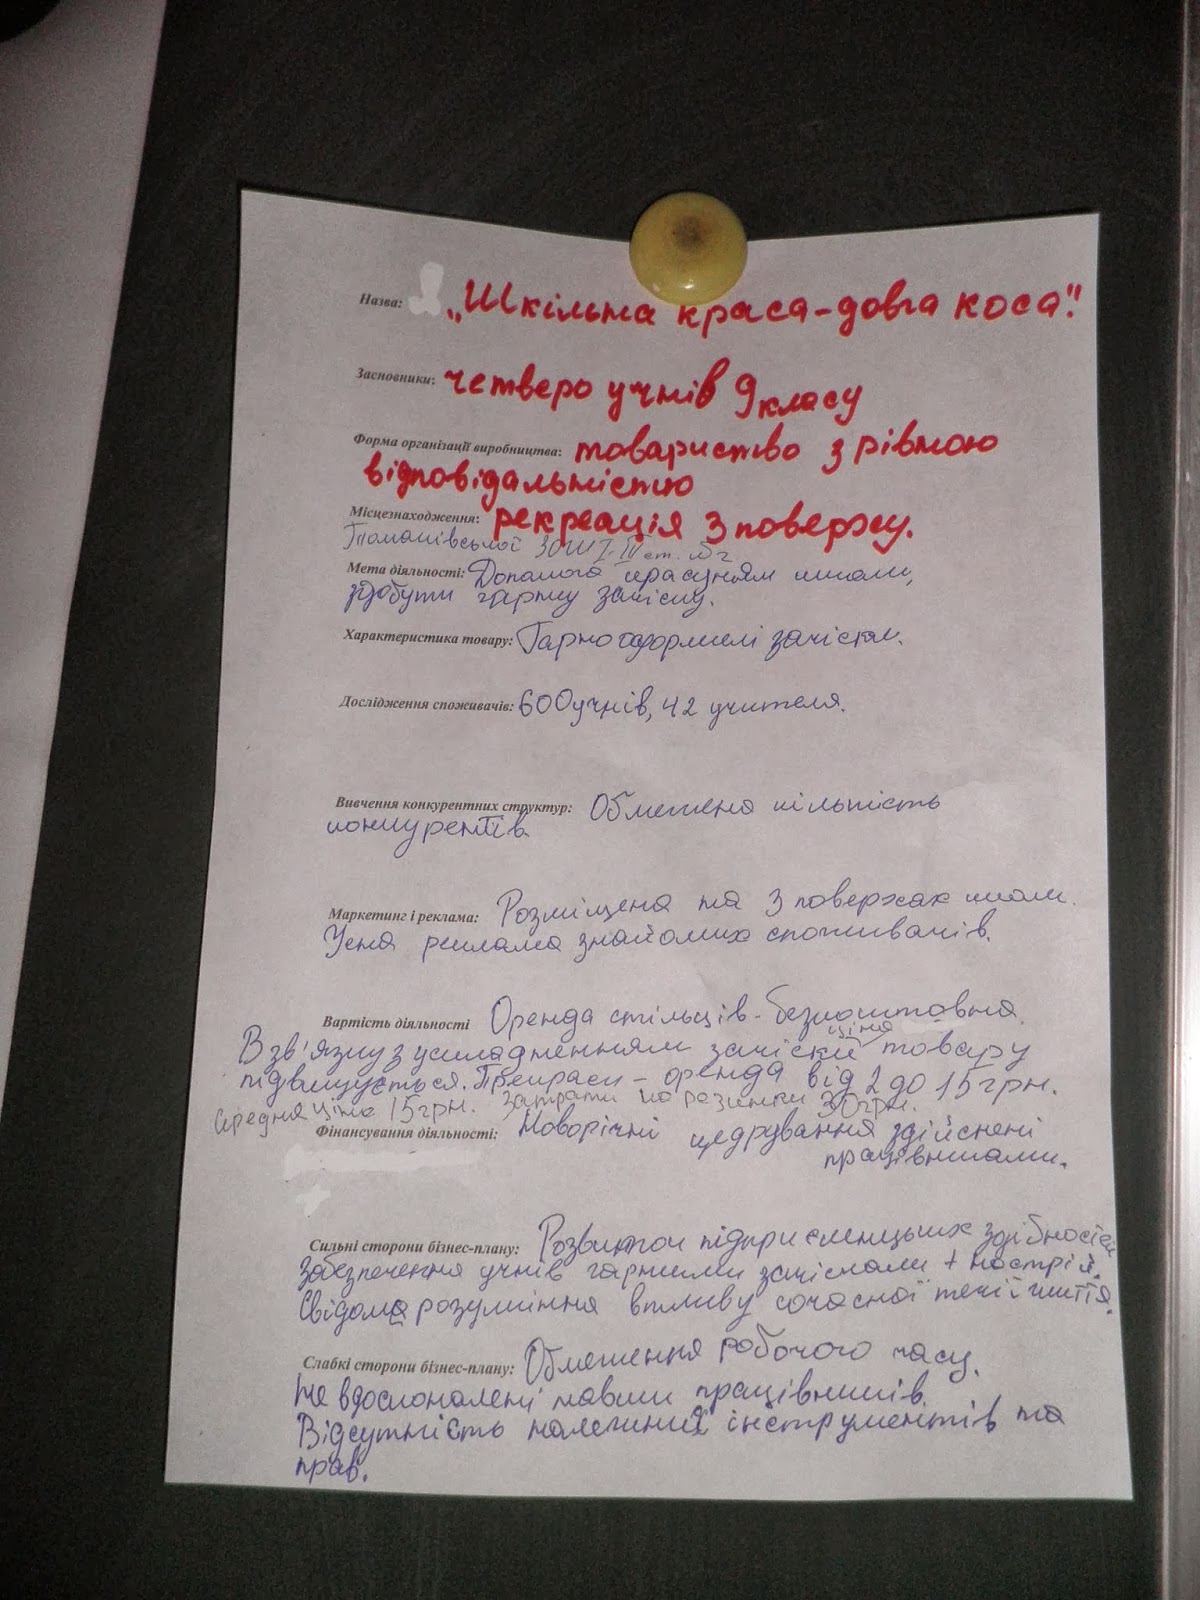 Назва: „Шкільна краса-довга коса".
Засновники: четверо учнів 9 класу
Форма організації виробництва: товариство з рівною
відповідальністю
Місцезнаходження: рекреація 3 поверху.
Томашівської ЗОШ І-ІІІ ст.
Мета діяльності: Допомога красуням школи,
здобути гарну зачіску.
Характеристика товару: Гарно оформлені зачіски.
Дослідження споживачів: 600 учнів, 42 учителя.
Вивчення конкурентних структур: Обмежена кількість
конкурентів.
Маркетинг і реклама: Розміщена на 3 поверхах школи.
Усна реклама знайомих споживачів.
Вартість діяльності Оренда стільців - безкоштовна.
В зв'язку з ускладненням зачіски ціна товару
підвищується. Прикраси - оренда від 2 до 15 грн.
Середня ціна 15 грн. Затрати на резинки 30 грн.
Фінансування діяльності: Новорічні щедрування здійснені
працівниками.
Сильні сторони бізнес-плану: Розвиток підприємницьких здібностей
Забезпечення учнів гарними зачісками + настрій.
Свідоме розуміння впливу сучасної течії життя.
Слабкі сторони бізнес-плану: Обмеження робочого часу.
Не вдосконалені навики працівників.
Відсутність належних інструментів та
прав.